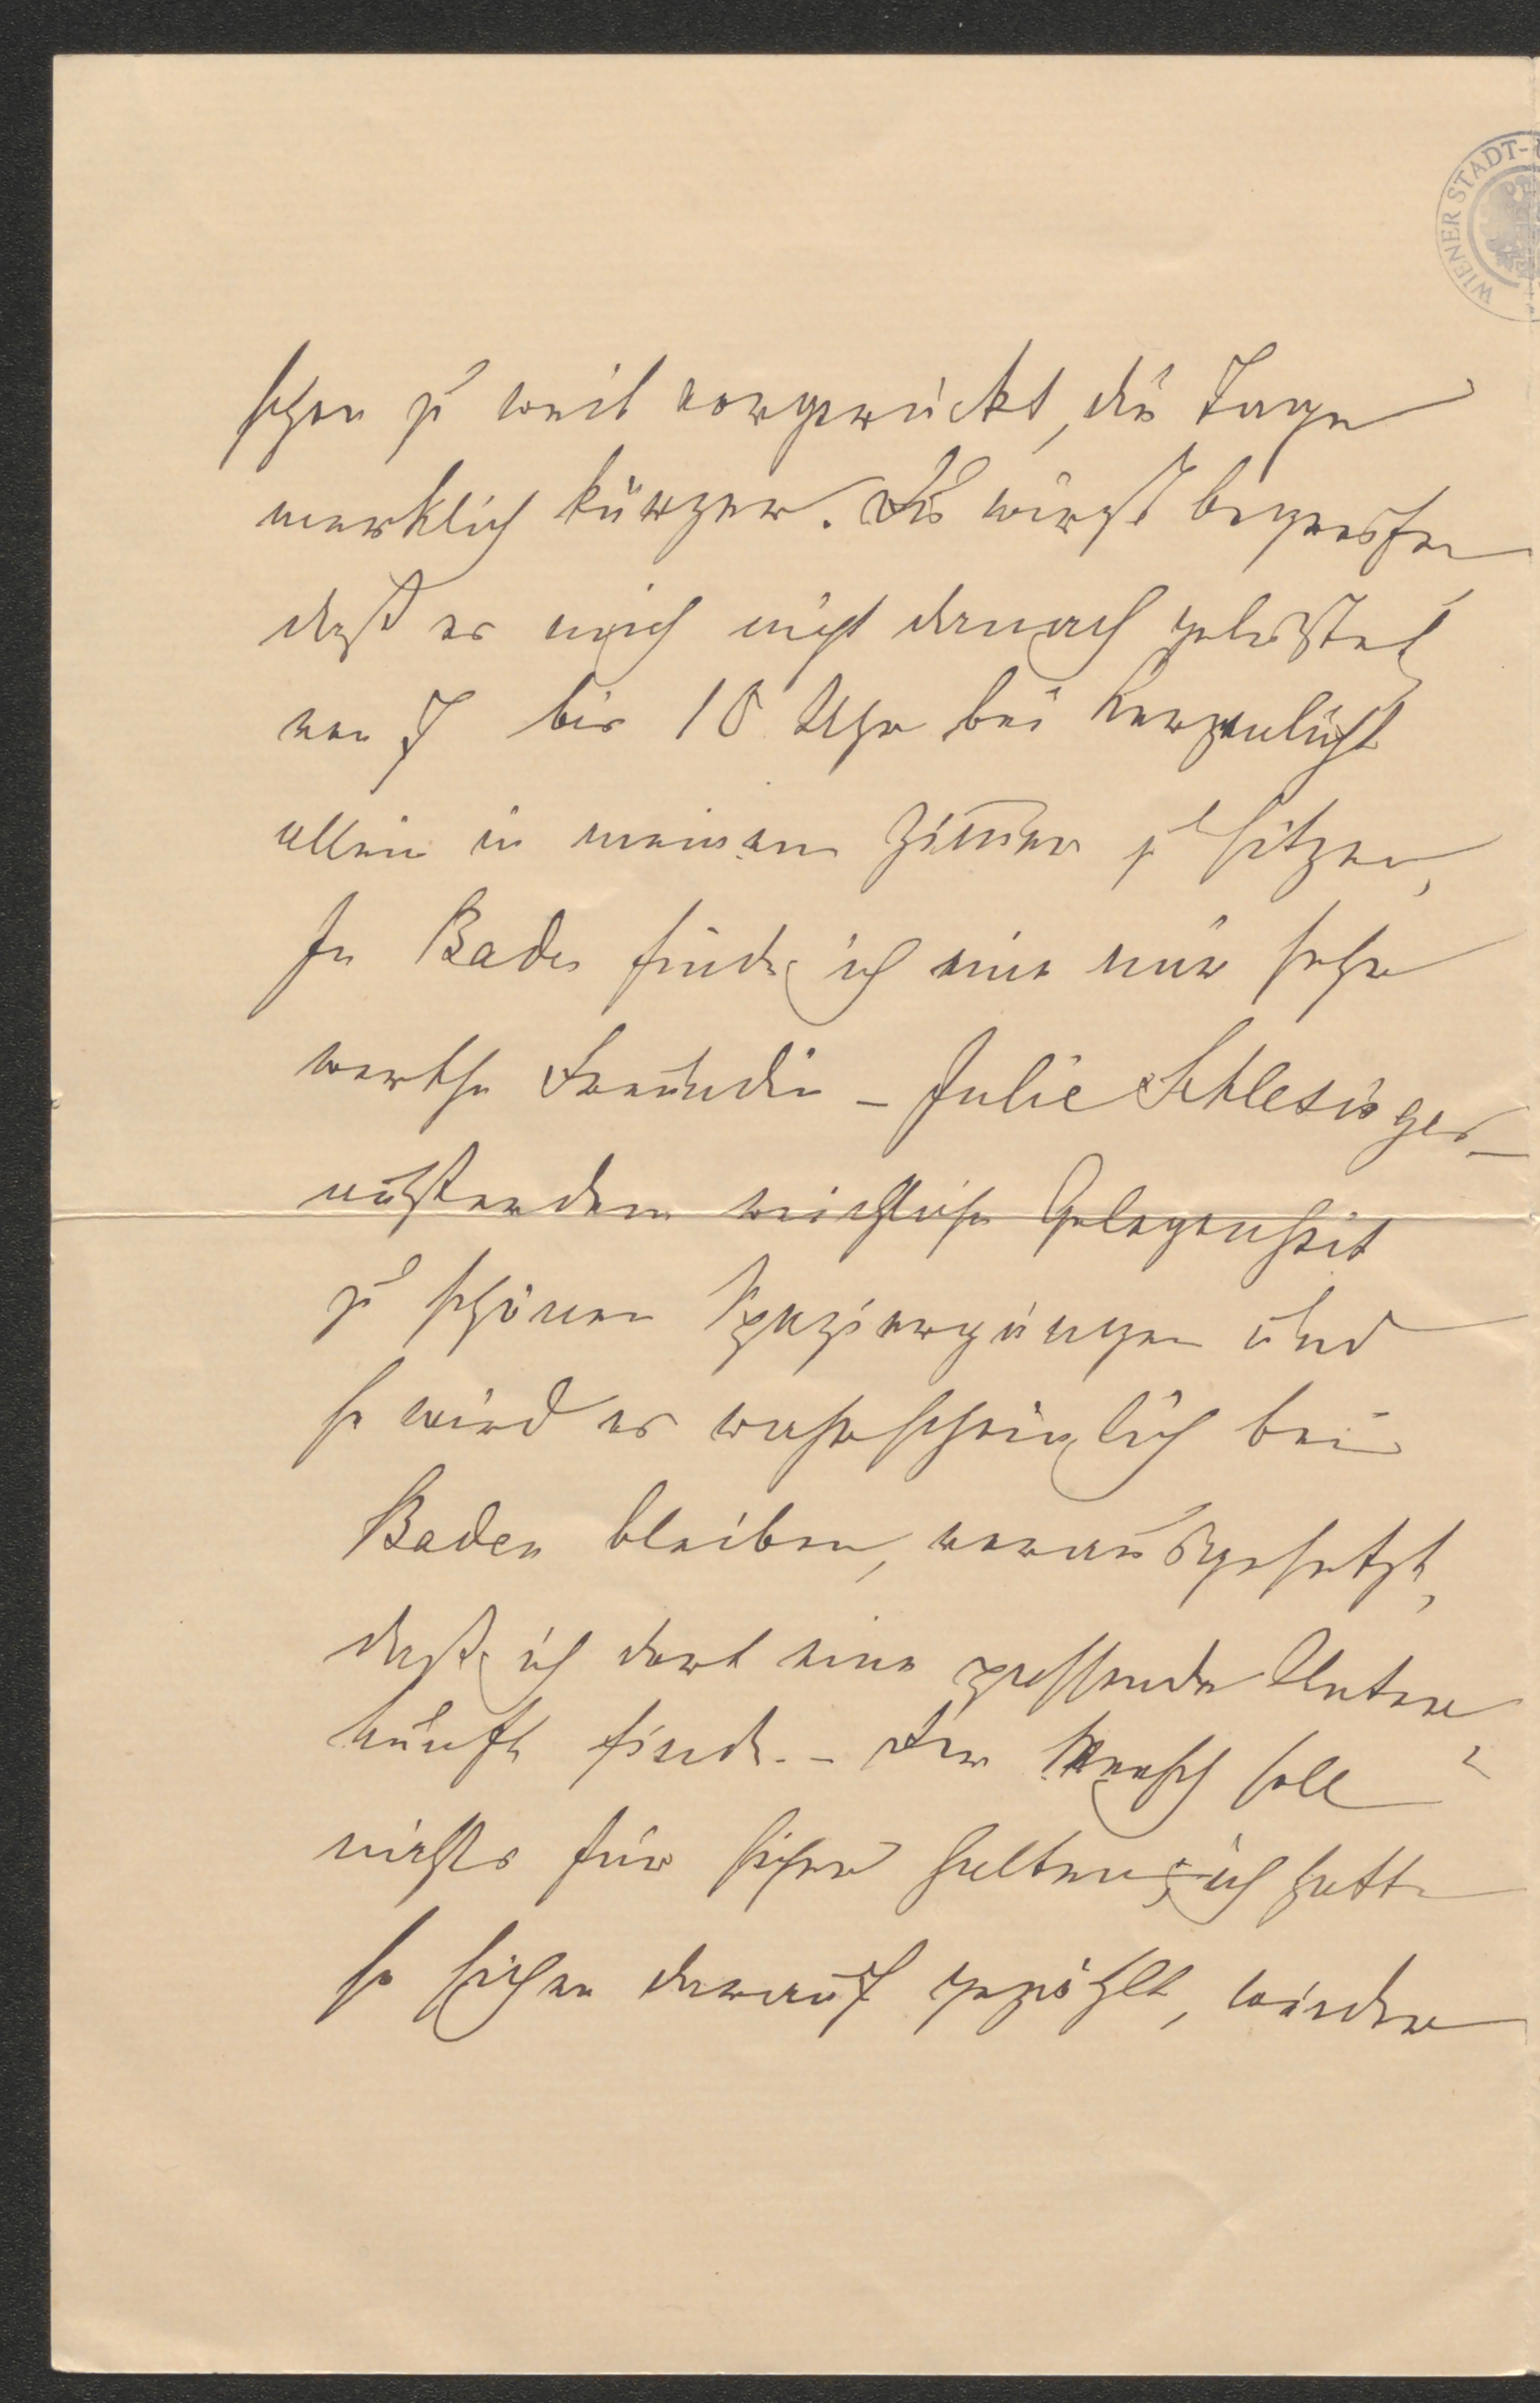 WIENER STADT-
schon zu weit vorgerückt, die Tage
merklich kürzer. Du wirst begreifen
daß es mich nicht darnach gelüstet,
von 7 bis 10 Uhr bei Kerzenlicht
allein in meinem Zimmer zu sitzen,
In Baden finde ich eine mir sehr
werthe Freundin – Julie Schlesinger –
außerdem reichliche Gelegenheit
zu schönen Spaziergängen und
so wird es wahrscheinlich bei
Baden bleiben, vorausgesetzt,
daß ich dort eine passende Unter
kunft finde. – Der Mensch soll
nichts für sicher halten; ich hatte
so sicher darauf gezählt, wieder